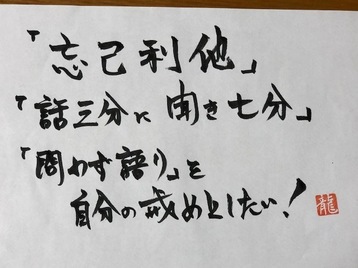 「忘己利他」
「話三分に聞き七分」
「問わず語り」を
自分の戒めとしたい!
龍